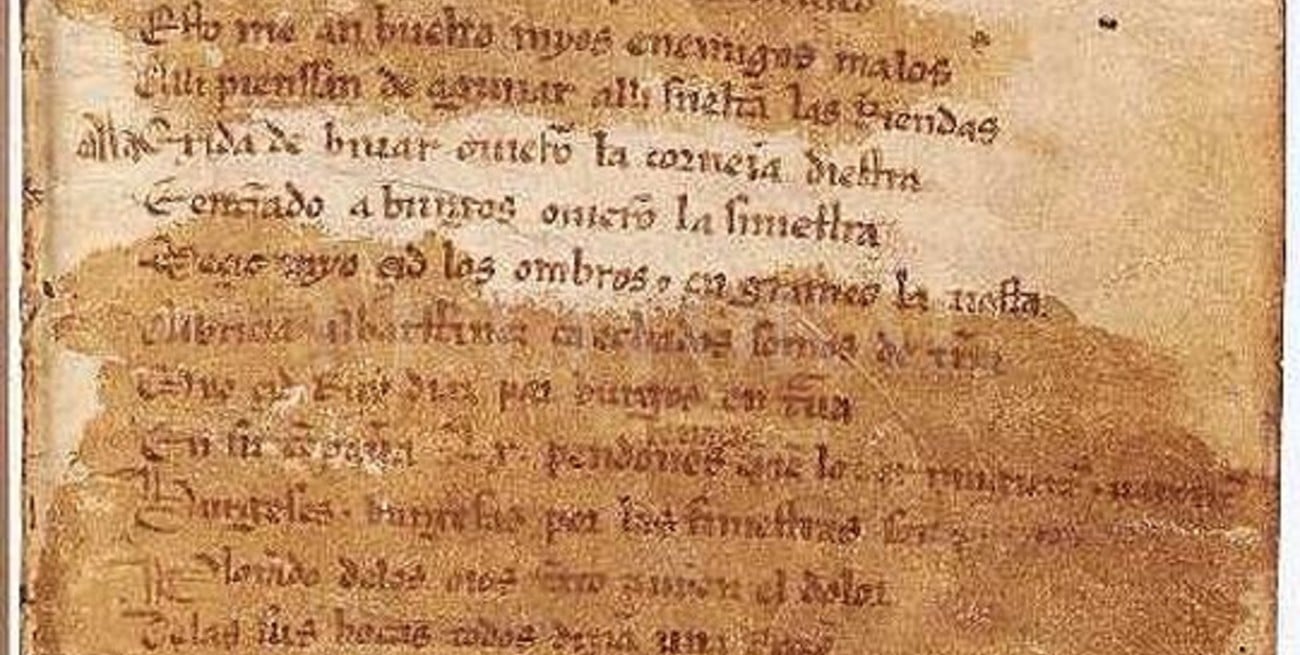 Esto me an buelto myos enemigos malos
Alli pienssan de aguiiar alli sueltã las Riendas
Ala Exida de biuar ouierõ la corneia diestra
E entrãdo a burgos ouierõ la siniestra
Meçio myo çid los ombros e en grameo la tiesta
Albricia albarffanez ca echados somos de tierra
çid Ruy diaz por burgos en
En su cõpaña .Lx. pendones
Burgeses burgesas por las siniestras son
Plorãdo delos oios tanto auien el dolor
Delas sus bocas todos dizian una